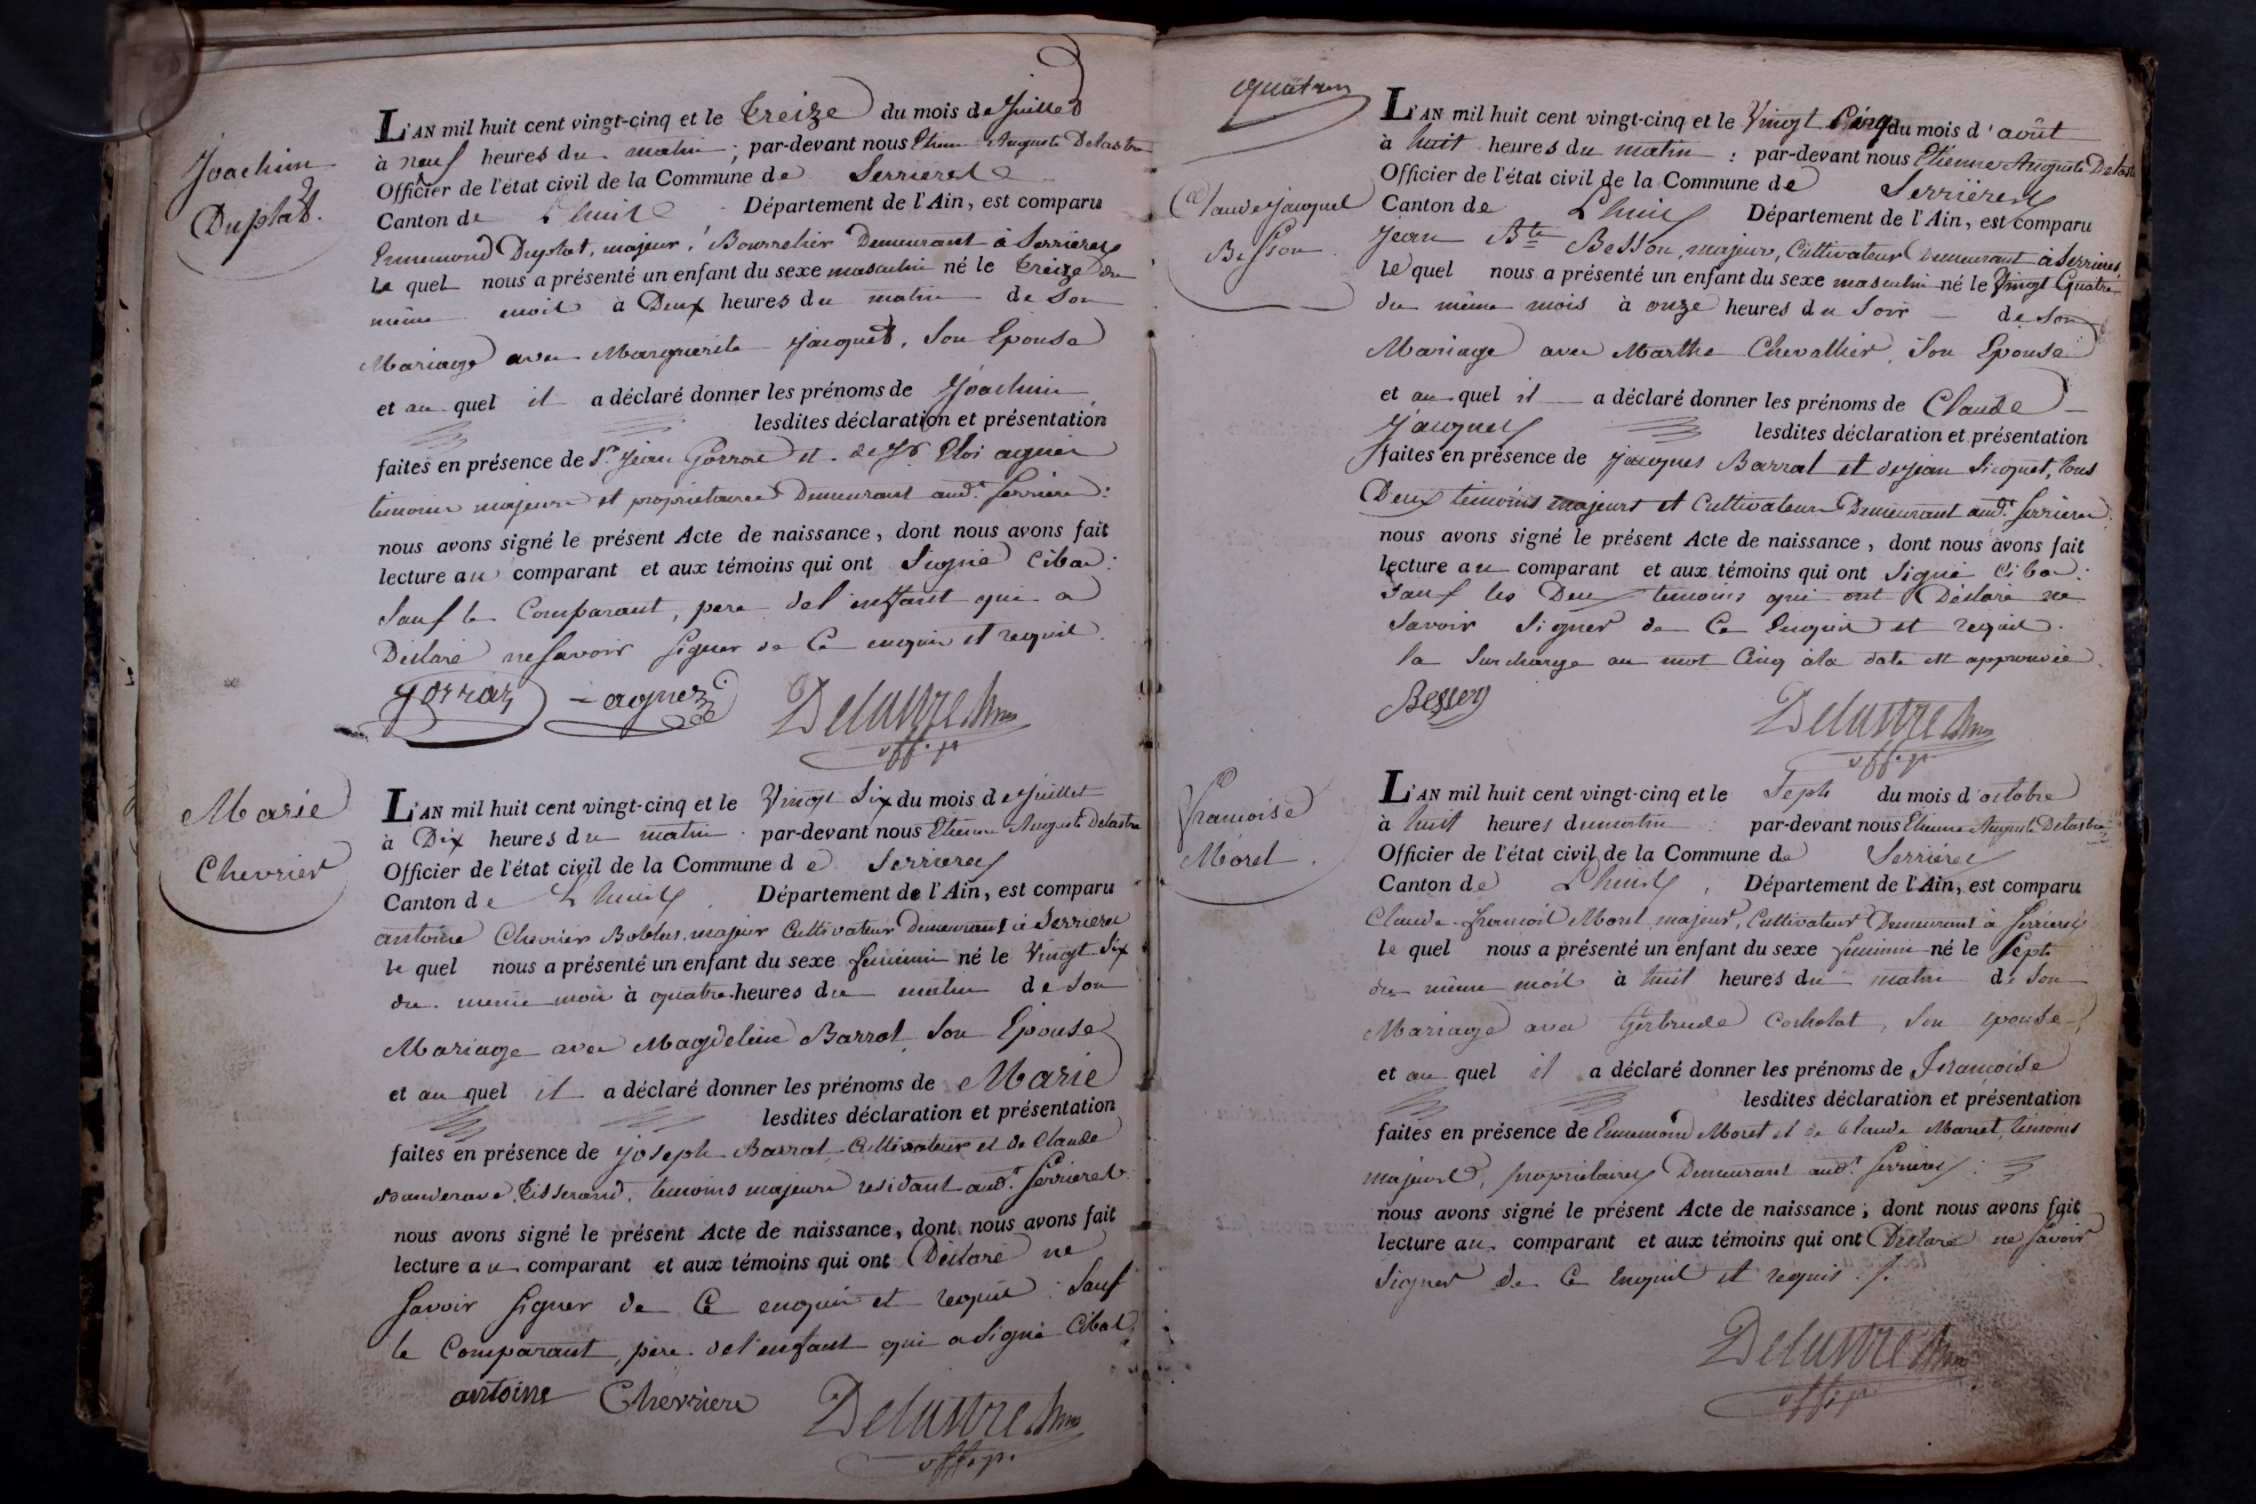 Joachim
Duplat.
L'AN mil huit cent vingt-cinq et le treize du mois de Juillet
à neuf heures du matin ; par-devant nous Etienne Auguste Delastre
Officier de l'état civil de la Commune de Serrieres
Canton de Lhuis Département de l'Ain, est comparu
Ennemond Duplat, majeur, Bourrelier Demeurant à Serrieres
le quel nous a présenté un enfant du sexe masculin né le treize du
même mois à Deux heures du matin de Son
Mariage avec Marguerite Jacquet, Son Epouse
et au quel il a déclaré donner les prénoms de Joachim
lesdites déclaration et présentation
faites en présence de Sr. Jean Gorraz et de Sr. Eloi agnès
temoins majeurs et proprietaires Demeurant aud.t Serrieres :
nous avons signé le présent Acte de naissance, dont nous avons fait
lecture au comparant et aux témoins qui ont Signé Cibas :
Sauf le Comparant, pere de l'enffant qui a
Déclaré ne Savoir Signer de Ce enquis et requis.
gorraz agnez Delastre
off. p.
Marie
Chevrier
L'AN mil huit cent vingt-cinq et le Vingt Six du mois de Juillet
à Dix heures du matin par-devant nous Etienne Auguste Delastre
Officier de l'état civil de la Commune de Serrieres
Canton de Lhuis Département de l'Ain, est comparu
antoine Chevrier majeur Cultivateur Demeurant à Serrieres
le quel nous a présenté un enfant du sexe feminin né le Vingt Six
du même mois à quatre heures du matin de Son
Mariage avec Magdeleine Barrat Son Epouse
et au quel il a déclaré donner les prénoms de Marie
lesdites déclaration et présentation
faites en présence de Joseph Barrat Cultivateur et de Claude
tisserand, temoins majeurs residant aud.t Serrieres.
nous avons signé le présent Acte de naissance, dont nous avons fait
lecture au comparant et aux témoins qui ont Déclaré ne
Savoir Signer de Ce enquis et requis : Sauf
le Comparant, père de l'enfant qui a Signé Cibas.
antoine Chevriere Delastre
off. p.
quatre
Claude Jacques
Besson
L'AN mil huit cent vingt-cinq et le Vingt Cinq du mois d'août
à huit heures du matin : par-devant nous Etienne Auguste Delastre
Officier de l'état civil de la Commune de Serrieres
Canton de Lhuis Département de l'Ain, est comparu
Jean Bte Besson, majeur, Cultivateur Demeurant à Serrieres,
le quel nous a présenté un enfant du sexe masculin né le Vingt Quatre
du même mois à onze heures du Soir de Son
Mariage avec Marthe Chevallier, Son Epouse
et au quel il a déclaré donner les prénoms de Claude
Jacques lesdites déclaration et présentation
faites en présence de Jacques Barrat et de Jean Sicquet, tous
Deux temoins majeurs et Cultivateurs Demeurant aud.t Serrieres
nous avons signé le présent Acte de naissance, dont nous avons fait
lecture au comparant et aux témoins qui ont Signé Cibas :
Sauf les Deux temoins qui ont Déclaré ne
Savoir Signer de Ce Enquis et requis.
la Surcharge au mot Cinq à la date est approuvée
Besson Delastre
off. p.
Francoise
Morel.
L'AN mil huit cent vingt-cinq et le Sept du mois d'octobre
à huit heures du matin : par-devant nous Etienne Auguste Delastre
Officier de l'état civil de la Commune de Serrieres
Canton de Lhuis, Département de l'Ain, est comparu
Claude Francois Morel majeur, Cultivateur Demeurant à Serrieres
le quel nous a présenté un enfant du sexe feminin né le Sept
du même mois à huit heures du matin de Son
Mariage avec Gertrude Cocholat, Son Epouse,
et au quel il a déclaré donner les prénoms de Francoise
lesdites déclaration et présentation
faites en présence de Ennemond Morel et de Claude temoins
majeurs, proprietaires Demeurant aud.t Serrieres :
nous avons signé le présent Acte de naissance ; dont nous avons fait
lecture au comparant et aux témoins qui ont Déclaré ne Savoir
Signer de Ce Enquis et requis.
Delastre
off. p.